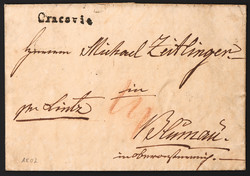 Cracovie
Herrn Michael Zeitlinger
in
pr Lintz
Blumau
in oberoesterreich
1802